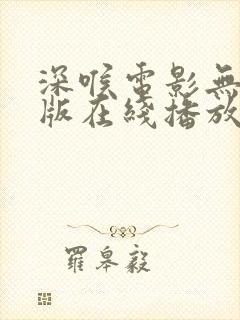 深喉電影無
版在綫播放
羅皋毅